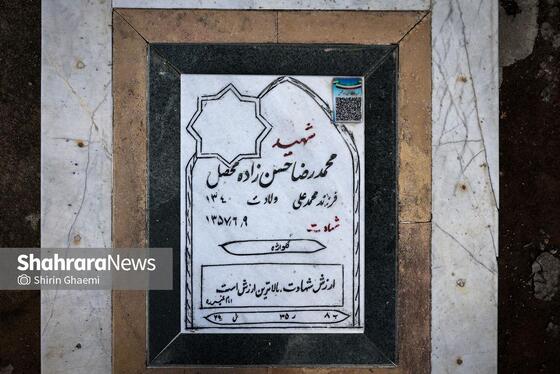 شهید
محمدرضا حسن زاده محصل
فرزند محمدعلی ولادت ۱۳۴۰
شهادت ۱۳۵۷/۶/۹
گهواره
ارزش شهادت، بالاترین ارزش است
امام خمینی ره
۸۶ ر ۳۵ ش ۲۹
ShahraraNews
Shirin Ghaemi